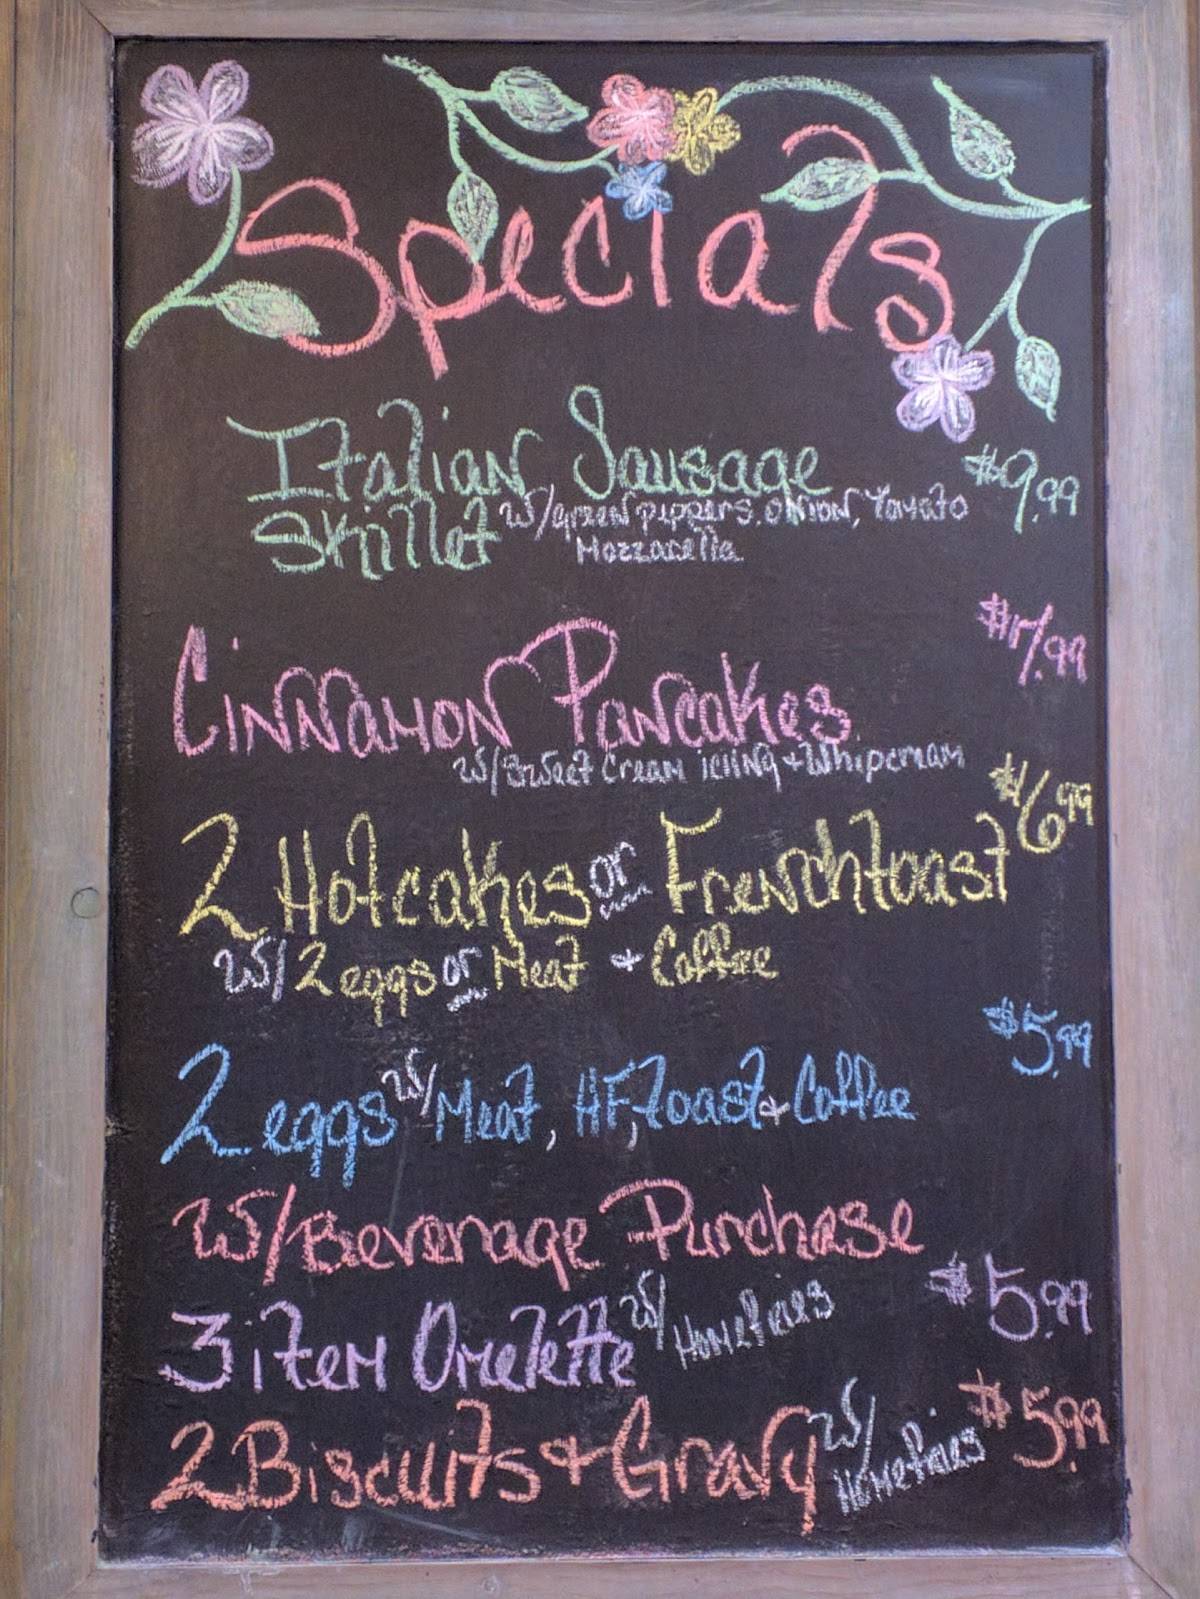 Specials
Italian Sausage $9.99
Skillet w/green peppers, onion, Tomato
Mozzarella
$7.99
Cinnamon Pancakes
w/Sweet Cream iciing + Whipcream
$6.99
2 Hotcakes or Frenchtoast
w/ 2 eggs or Meat + Coffee
$5.99
2 eggs w/ Meat, HF, toast + Coffee
w/Beverage Purchase
3 item Omelette w/ Homefries $5.99
2 Biscuits + Gravy w/ Homefries $5.99